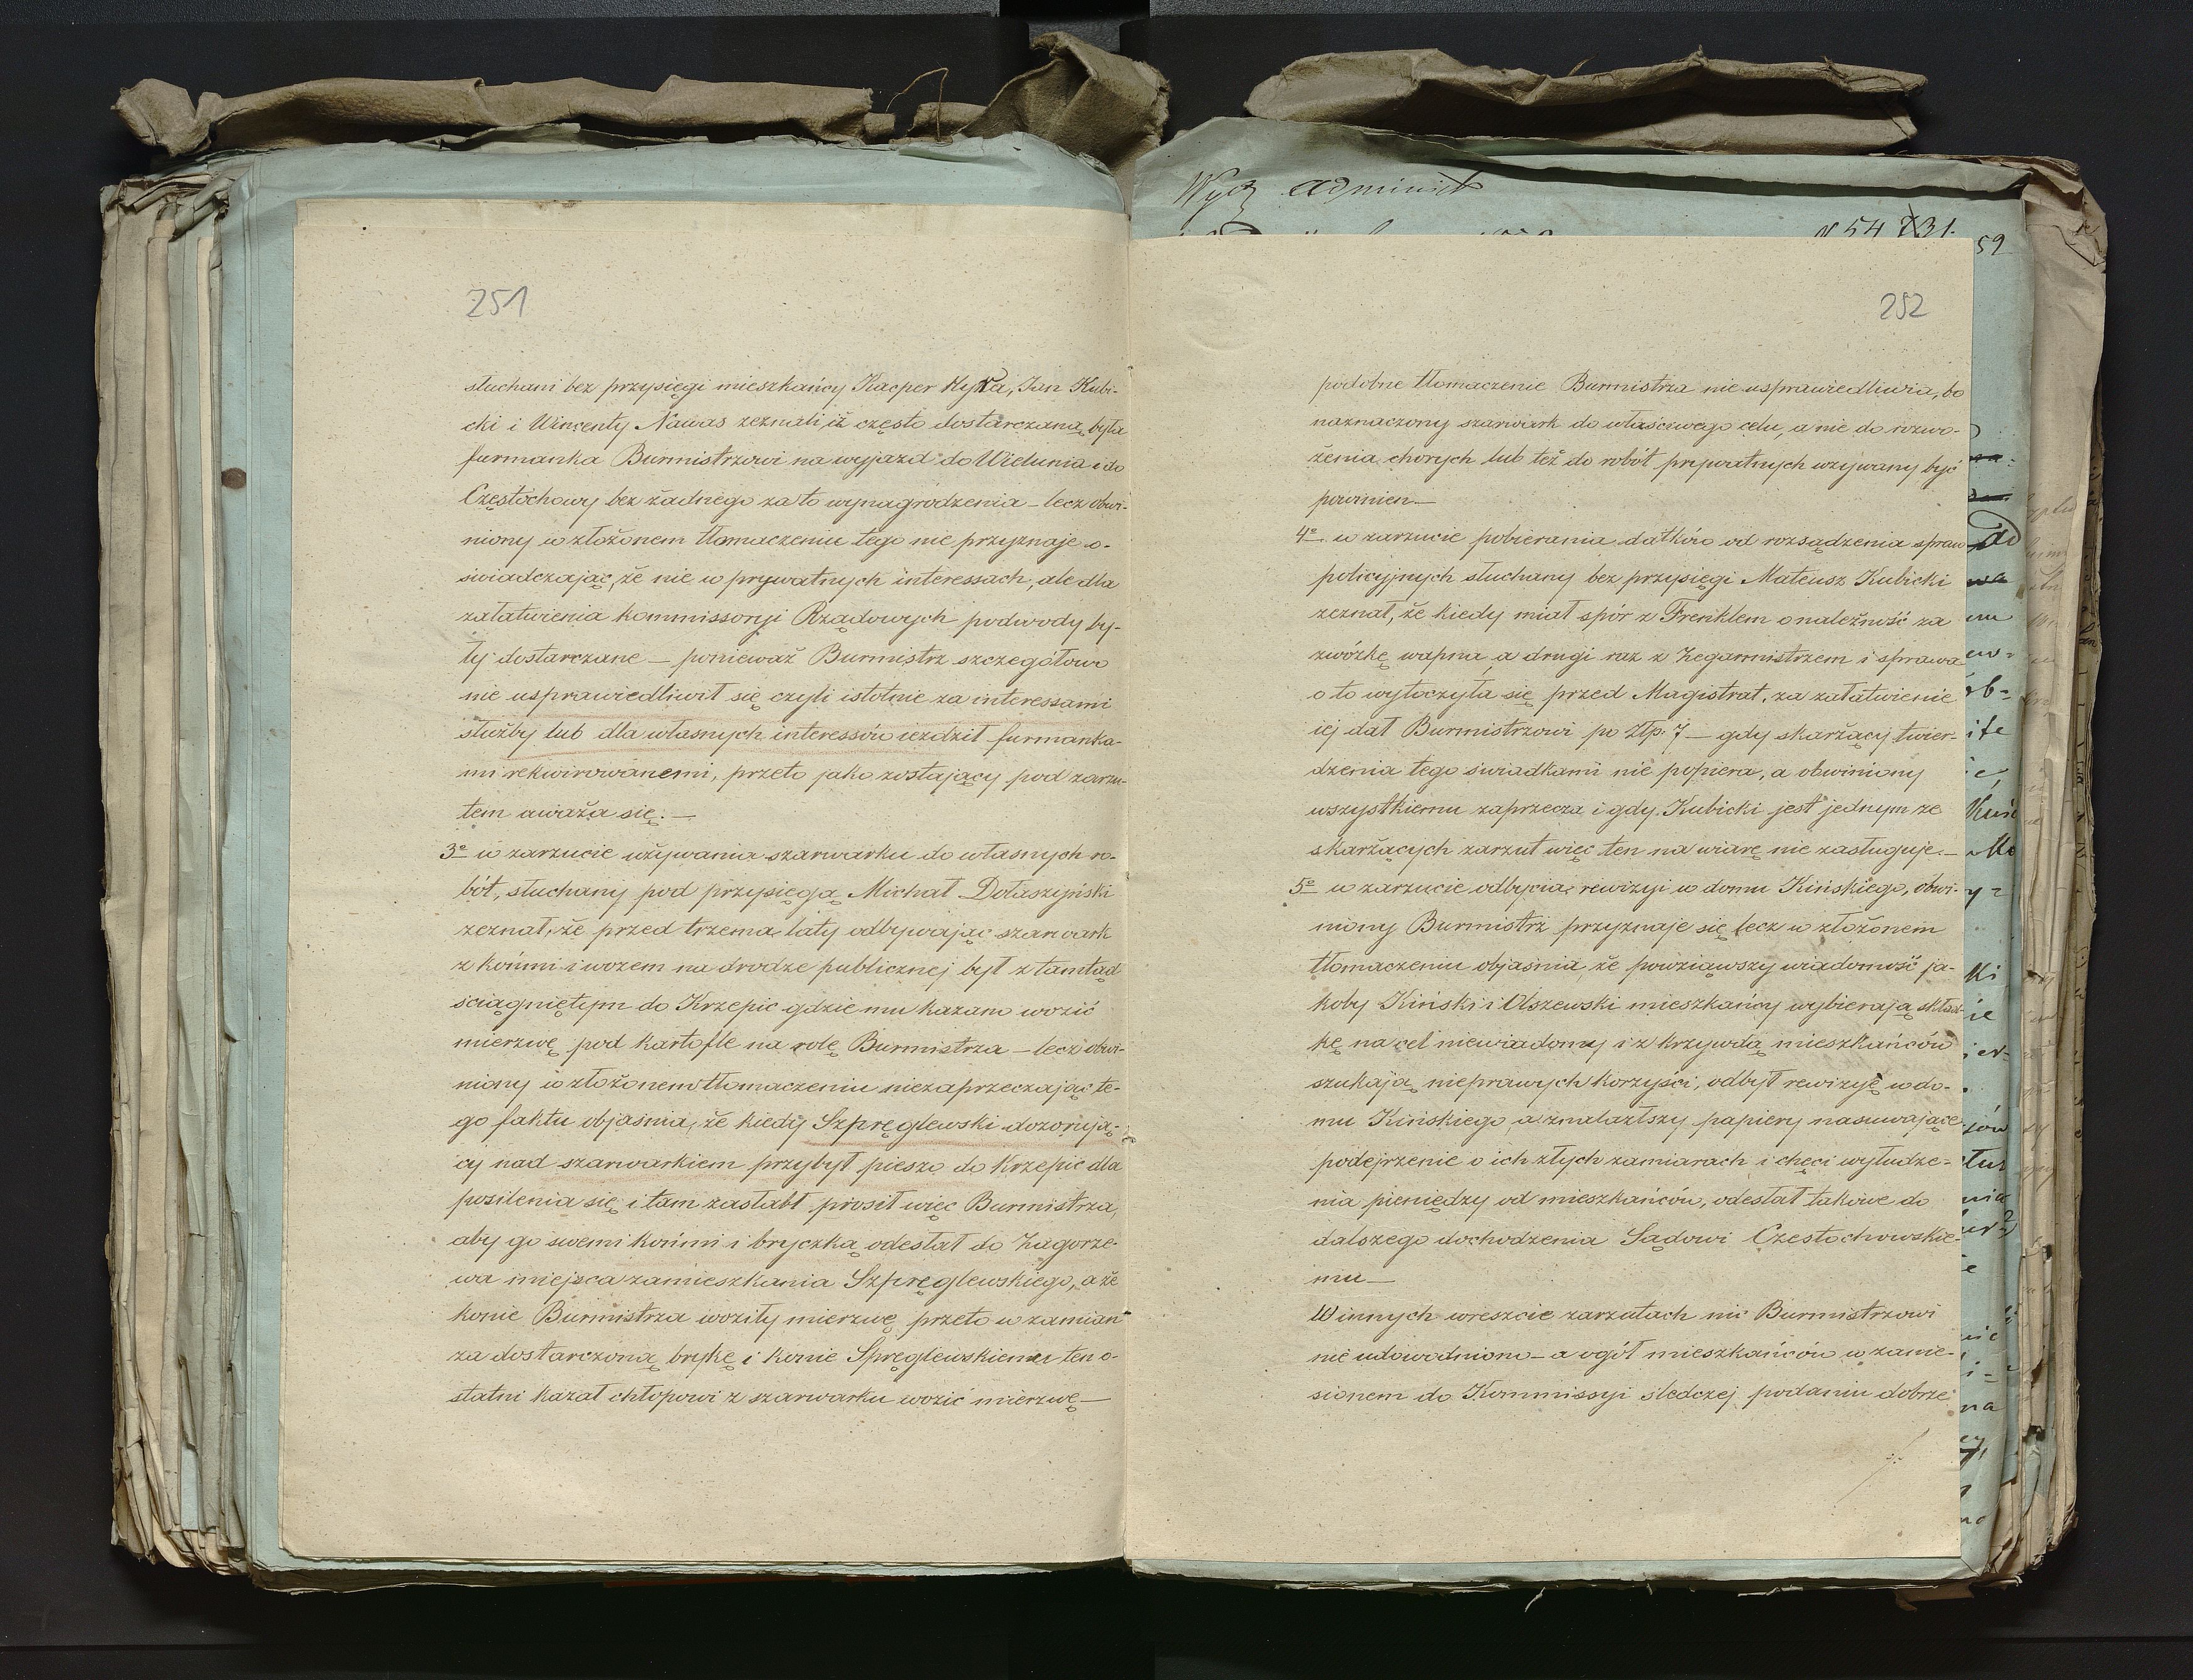 251
słuchani bez przysięgi mieszkańcy Kacper Kyrca, Jan Kubi-
cki i Wincenty Nawas zeznali, iż często dostarczaną była
furmanka Burmistrzowi na wyjazd do Wielunia i do
Częstochowy bez żadnego za to wynagrodzenia – lecz obwi-
niony w złożonem tłomaczeniu tego nie przyznaje o-
swiadczając, że nie w prywatnych interessach, ale dla
załatwienia kommissoryi Rządowych podwody by-
ły dostarczane – ponieważ Burmistrz szczegółowo
nie usprawiedliwił się czyli istotnie za interessami
służby lub dla własnych interessów iezdził furmanka-
mi rekwirowanemi, przeto jako zostający pod zarzu-
tem uważa się. –
3e w zarzucie używania szarwarku do własnych ro-
bót, słuchany pod przysięgą Michał Dołaszyński
zeznał, że przed trzema laty odbywając szarwark
z końmi i wozem na drodze publicznej był z tamtąd
sciągniętym do Krzepic gdzie mu kazano wozić
mierzwę pod kartofle na rolę Burmistrza – lecz obwi-
niony w złożonem tłomaczeniu niezaprzeczając te-
go faktu objasnia, że kiedy Szpręglewski dozorują-
cy nad szarwarkiem przybył pieszo do Krzepic dla
posilenia się i tam zasłabł prosił więc Burmistrza,
aby go swemi końmi i bryczką odesłał do Zagorze-
wa miejsca zamieszkania Szpręglewskiego, a że
konie Burmistrza woziły mierzwę przeto w zamian
za dostarczoną brykę i konie Spręglewskiemu ten o-
statni kazał chłopowi z szarwarku wozić mierzwę –
Wydz administr
N 54 731.
59
252
podobne tłomaczenie Burmistrza nie usprawiedliwia, bo
naznaczony szarwark do właściwego celu, a nie do rozwo-
żenia chorych lub też do robót prywatnych wzywany być
powinien –
4e w zarzucie pobierania datków od rozsądzenia spraw
policyjnych słuchany bez przysięgi Mateusz Kubicki
zeznał, że kiedy miał spór z Frenklem o należność za
zwózkę wapna, a drugi raz z Zegarmistrzem i sprawa
o to wytoczyła się przed Magistrat, za załatwienie
iej dał Burmistrzowi po złp. 7 – gdy skarżący twier-
dzenia tego świadkami nie popiera, a obwiniony
wszystkiemu zaprzecza i gdy Kubicki jest jednym ze
skarżących zarzut więc ten na wiarę nie zasługuje. –
5e w zarzucie odbycia rewizyi w domu Kińskiego, obwi-
niony Burmistrz przyznaje się lecz w złożonem
tłomaczeniu objaśnia, że powziąwszy wiadomość ja-
koby Kiński i Olszewski mieszkańcy wybierają skład-
kę na cel niewiadomy i z krzywdą mieszkańców
szukają nieprawych korzyści, odbył rewizyę w do-
mu Kińskiego, a znalazłszy papiery nasuwające
podejrzenie o ich złych zamiarach i chęci wyłudze-
nia pieniędzy od mieszkańców, odesłał takowe do
dalszego dochodzenia Sądowi Częstochowskie-
mu –
W innych wreszcie zarzutach nic Burmistrzowi
nie udowodniono – a ogół mieszkańców w zanie-
sionem do Kommissyi śledczej podaniu dobrze